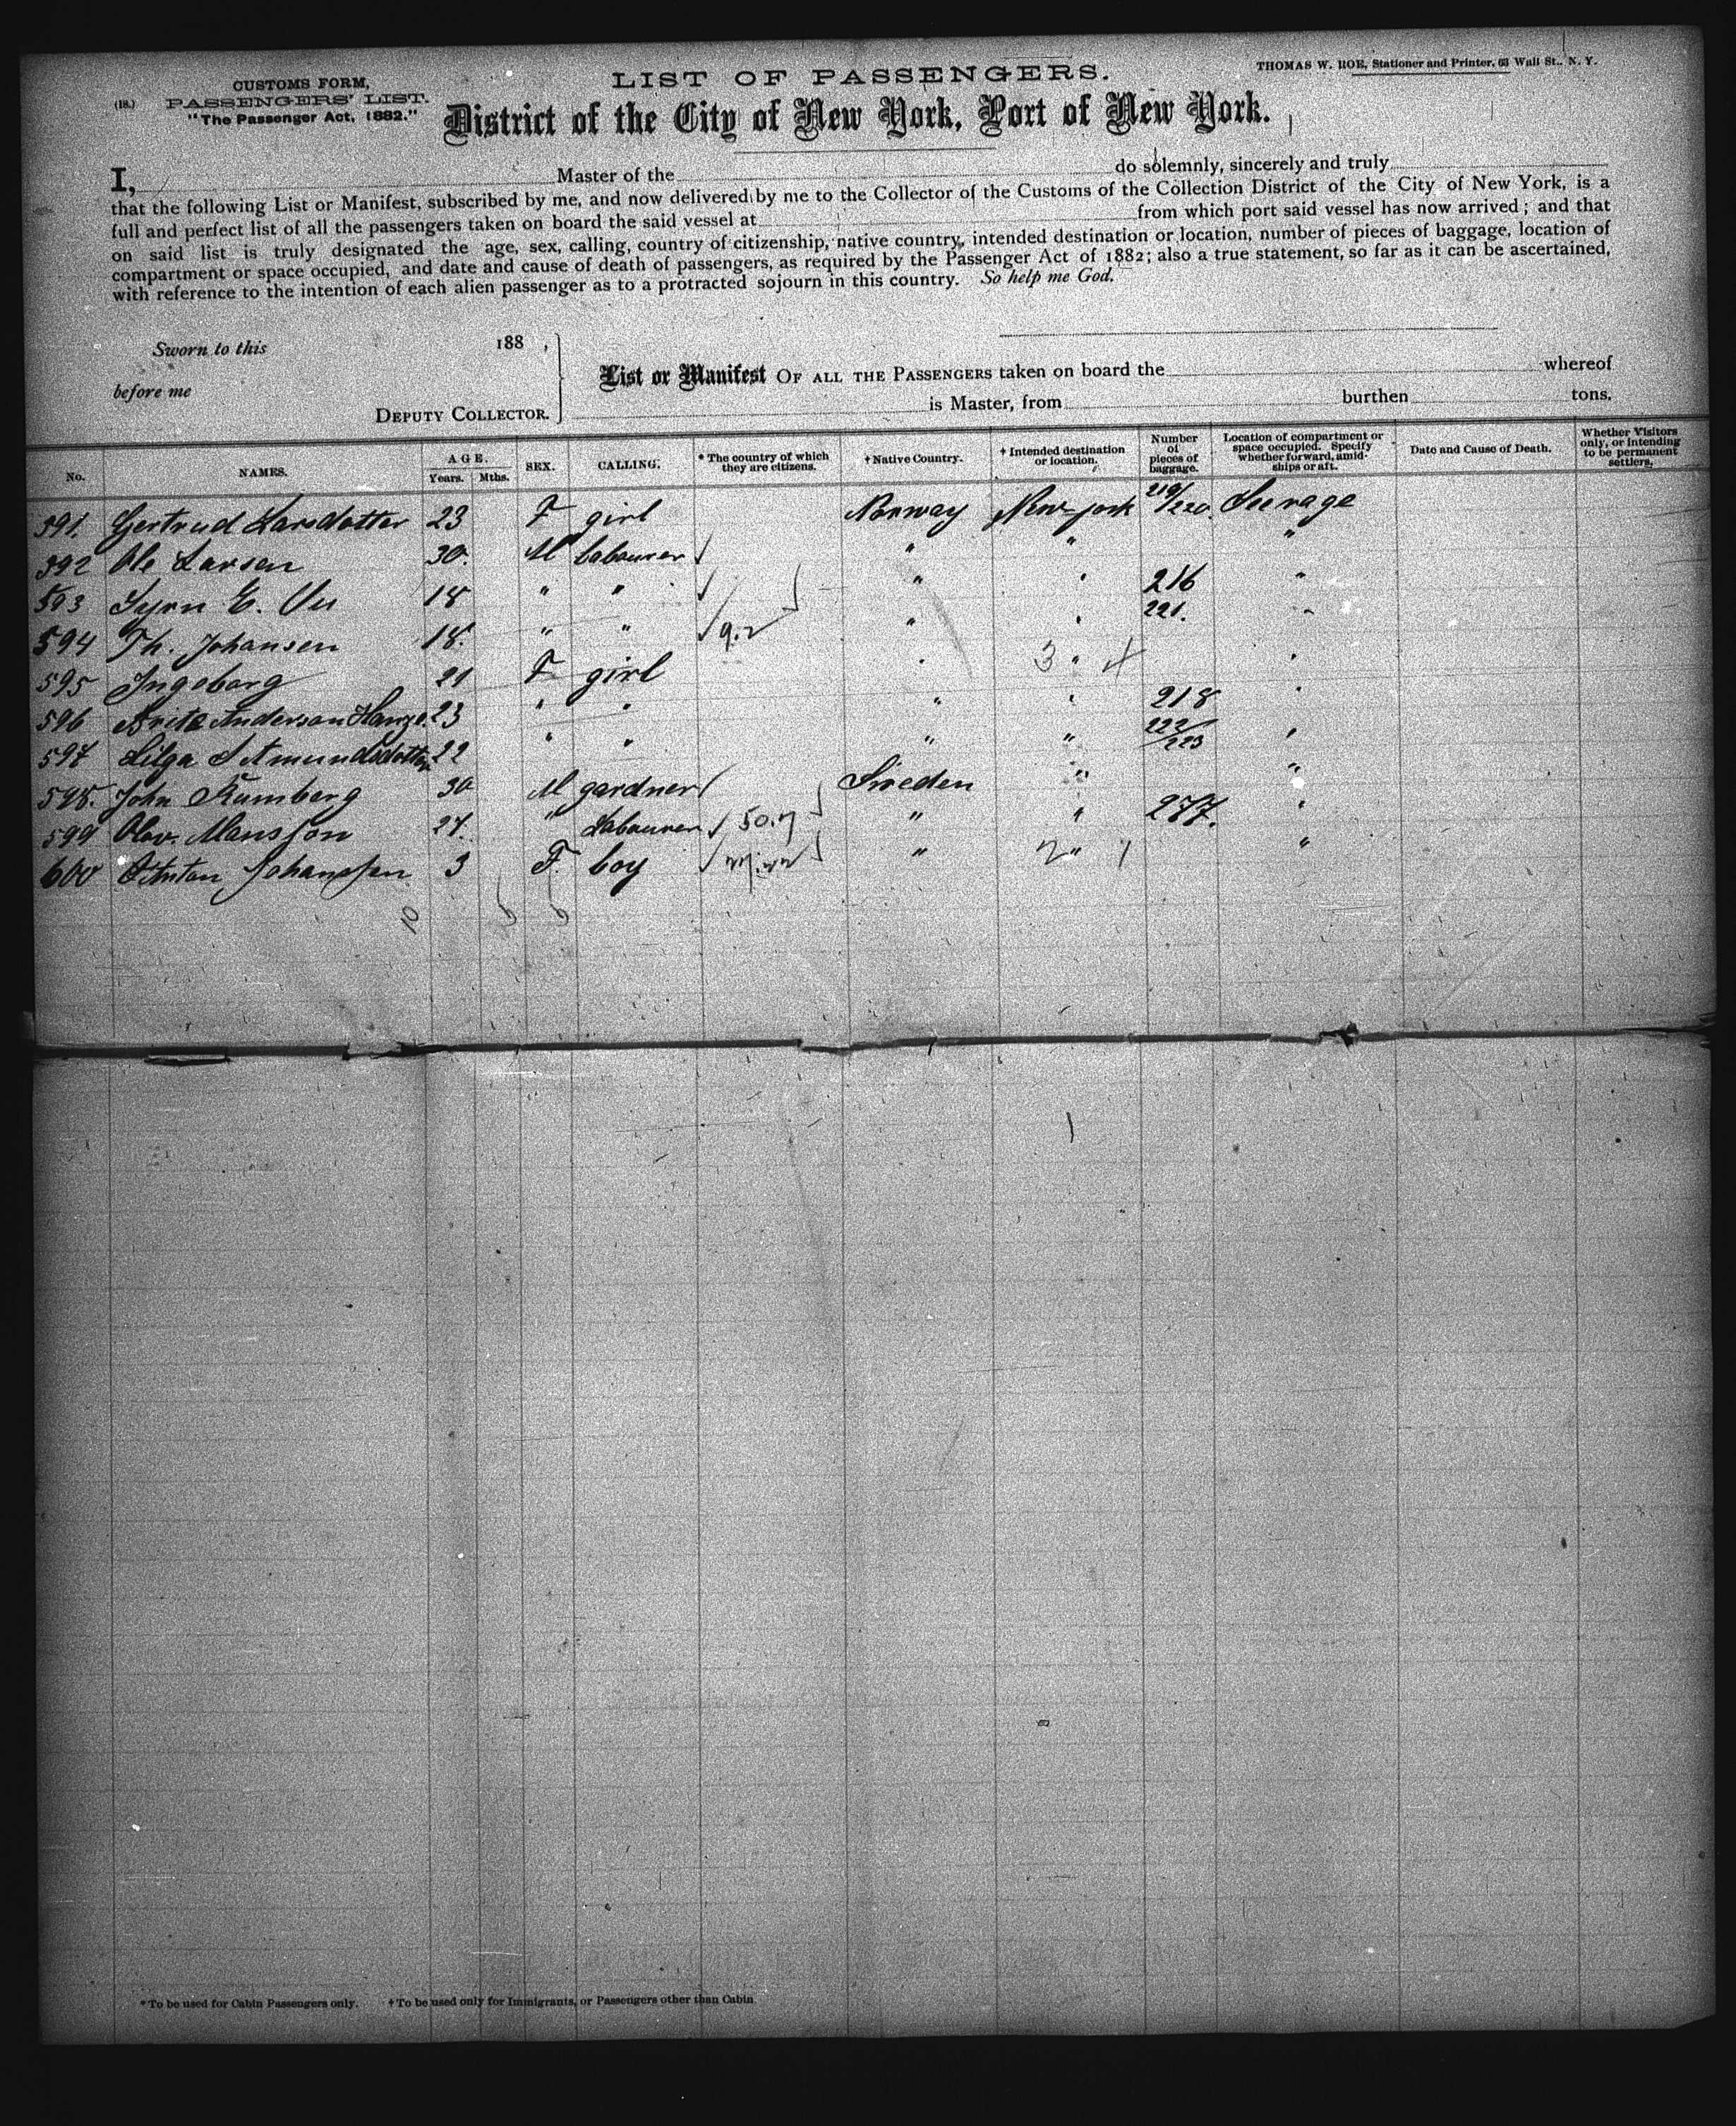 CUSTOMS FORM,
(18.) PASSENGERS' LIST.
"The Passenger Act, 1882."
LIST OF PASSENGERS.
THOMAS W. ROE, Stationer and Printer, 63 Wall St., N. Y.
District of the City of New York, Port of New York.
I, Master of the do solemnly, sincerely and truly
that the following List or Manifest, subscribed by me, and now delivered by me to the Collector of the Customs of the Collection District of the City of New York, is a
full and perfect list of all the passengers taken on board the said vessel at from which port said vessel has now arrived; and that
on said list is truly designated the age, sex, calling, country of citizenship, native country, intended destination or location, number of pieces of baggage, location of
compartment or space occupied, and date and cause of death of passengers, as required by the Passenger Act of 1882; also a true statement, so far as it can be ascertained,
with reference to the intention of each alien passenger as to a protracted sojourn in this country. So help me God.
Sworn to this 188 ,
before me
DEPUTY COLLECTOR.
List or Manifest OF ALL THE PASSENGERS taken on board the whereof
is Master, from burthen tons.
No. NAMES. AGE. Years. Mths. SEX. CALLING. * The country of which they are citizens. † Native Country. † Intended destination or location. Number of pieces of baggage. Location of compartment or space occupied. Specify whether forward, amidships or aft. Date and Cause of Death. Whether Visitors only, or intending to be permanent settlers.
591. Gertrud Larsdatter 23 F girl Norway New-york 219/220. Steerage
592 Ole Larsen 30. M labourer " " "
593 E. 18 " " " " 216 "
594 Th. Johansen 18. " " 9.2 " " 221. "
595 Ingeborg 21 F girl " 3 " 4 "
596 Anderson 23 " " " " 218 "
597 22 " " " " 222/223 "
598. John Rumberg 30 M gardner Sweden " "
599 Olav. Mansson 27. " Labourer 50.7 " " 277. "
600 Anton Johanssen 3 F. boy " 2 " 1 "
10 6 6
* To be used for Cabin Passengers only. † To be used only for Immigrants, or Passengers other than Cabin.